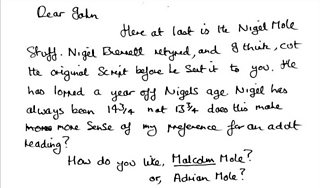 Dear John
Here at last is the Nigel Mole
Stuff. Nigel Bennett retyped, and I think, cut
the original Script before he sent it to you. He
has lopped a year off Nigels age. Nigel has
always been 14¾ not 13¾ does this make
more sense of my preference for an adult
reading?
How do you like, Malcolm Mole?
or, Adrian Mole?